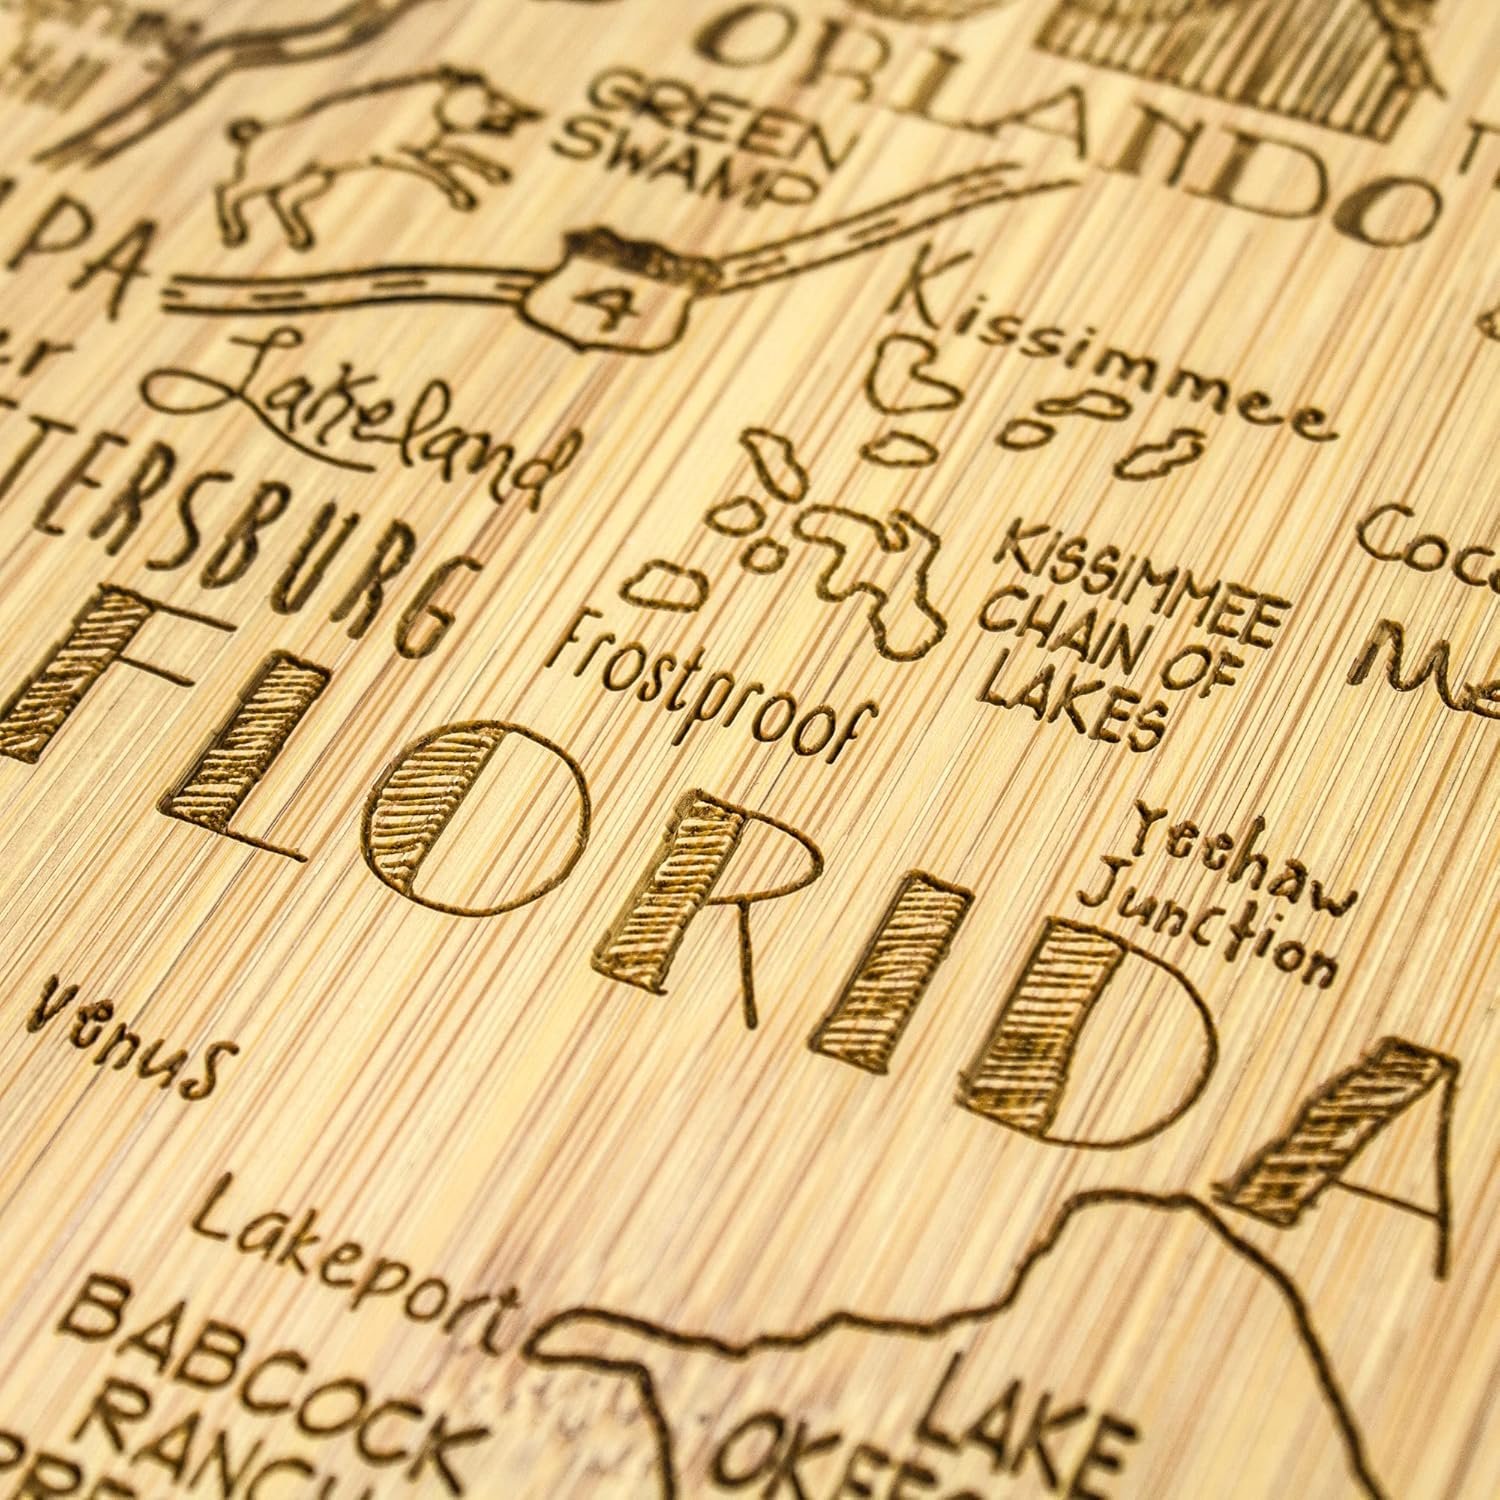 ORLANDO
GREEN
SWAMP
4
PA
Kissimmee
Lakeland
TERSBURG
KISSIMMEE
CHAIN OF
LAKES
Frostproof
FLORIDA
Yeehaw
Junction
Venus
Lakeport
BABCOCK
RANCH
LAKE